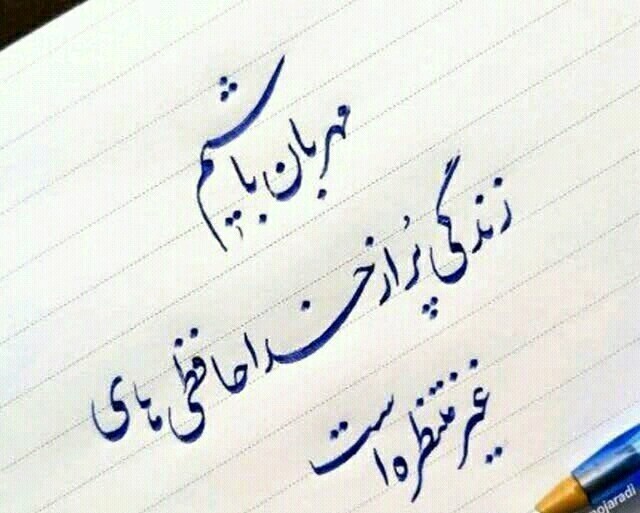 مهربان باشیم
زندگی پُر از خداحافظی های
غیر منتظره است